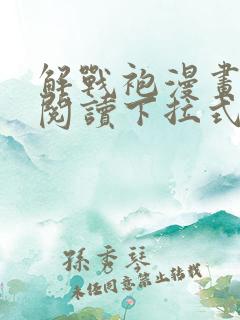 解戰袍漫畫
閱讀下拉式
孫秀琴
未经同意禁止转载